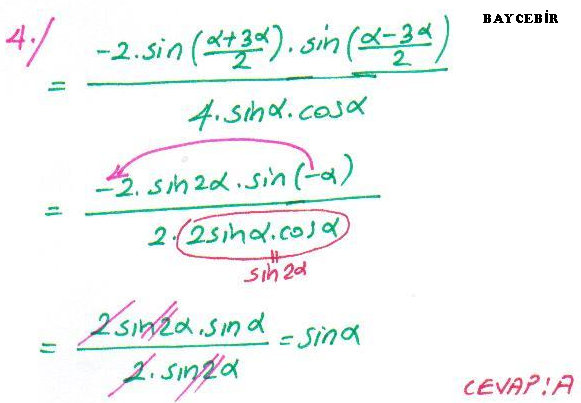 BAYCEBİR
4./
= -2.sin(α+3α/2).sin(α-3α/2) / 4.sinα.cosα
= -2.sin2α.sin(-α) / 2.(2sinα.cosα)
sin2α
= 2sin2α.sinα / 2.sin2α = sinα
CEVAP:A